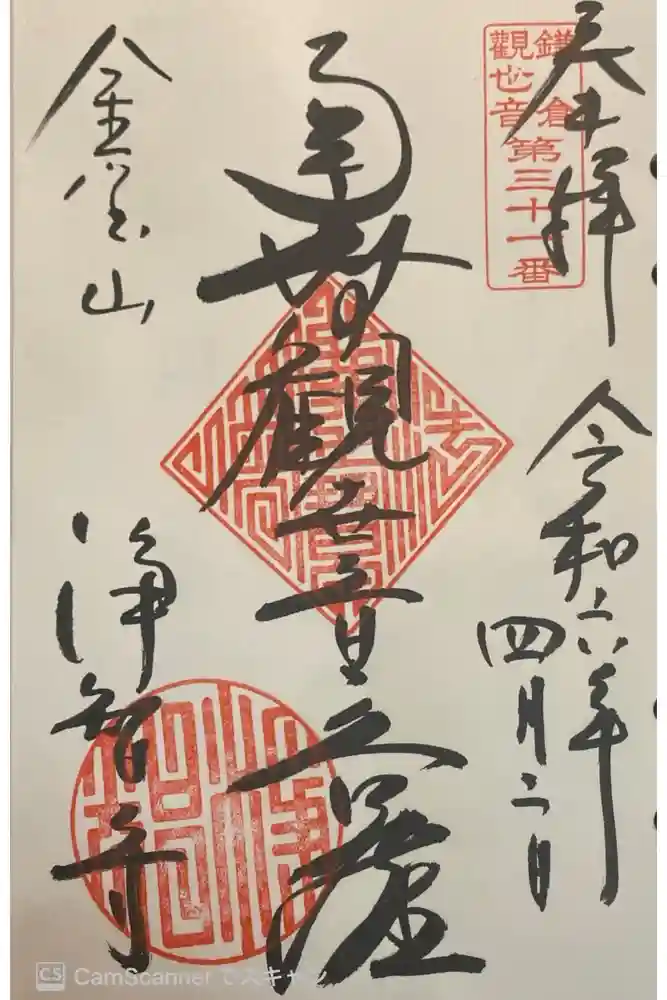 奉拝
鎌倉
觀世音
第三十一番
令和六年
四月二日
南無觀世音菩薩
金宝山
淨智寺
CS CamScanner でスキャン